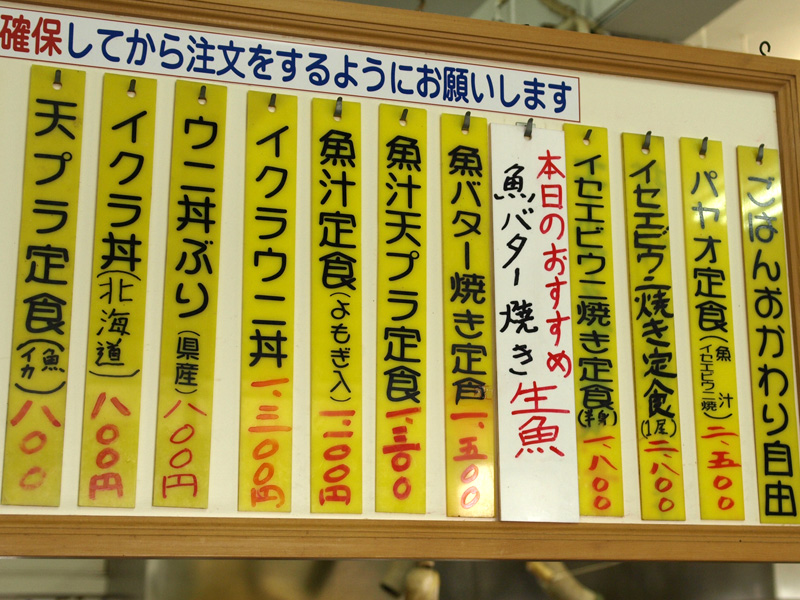 確保してから注文をするようにお願いします
ごはんおかわり自由
パヤオ定食(魚汁イセエビウニ焼)二、五〇〇
イセエビウニ焼き定食(1尾)二、八〇〇
イセエビウニ焼き定食(半身)一、八〇〇
本日のおすすめ
魚バター焼き生魚
魚バター焼き定食一、五〇〇
魚汁天プラ定食一、三〇〇
魚汁定食(よもぎ入)一、二〇〇円
イクラウニ丼一、三〇〇円
ウニ丼ぶり(県産)八〇〇円
イクラ丼(北海道)八〇〇円
天プラ定食(魚イカ)八〇〇